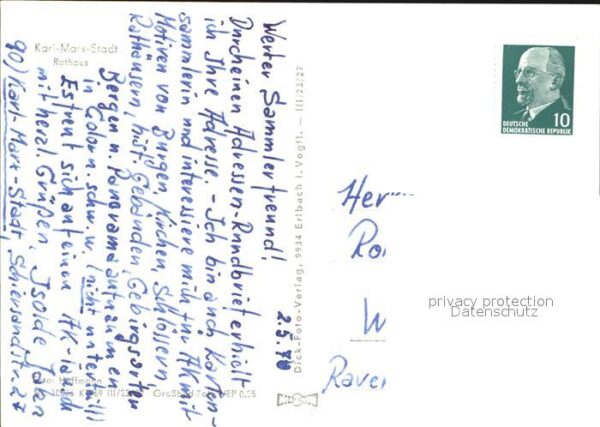 Karl-Marx-Stadt
Rathaus
2.5.70
Werter Sammlerfreund!
Durch einen Adressen-Rundbrief erhielt
ich Ihre Adresse. - Ich bin auch Karten-
sammlerin und interessiere mich für AK mit
Motiven von Burgen, Kirchen, Schlössern
Rathäusern, hist. Gebäuden, Gebirgsorten
Bergen u. Panoramaaufnahmen
in Color u. schw. w. (nicht unterteilt)
Es freut sich auf einen AK-Tausch
mit herzl. Grüßen, Isolde
90) Karl-Marx-Stadt,
Hoffmann
Dick-Foto-Verlag, 9934 Erlbach i. Vogtl. — III/23/27
DEUTSCHE
DEMOKRATISCHE REPUBLIK
10
Her
Ro
W
Raven
privacy protection
Datenschutz